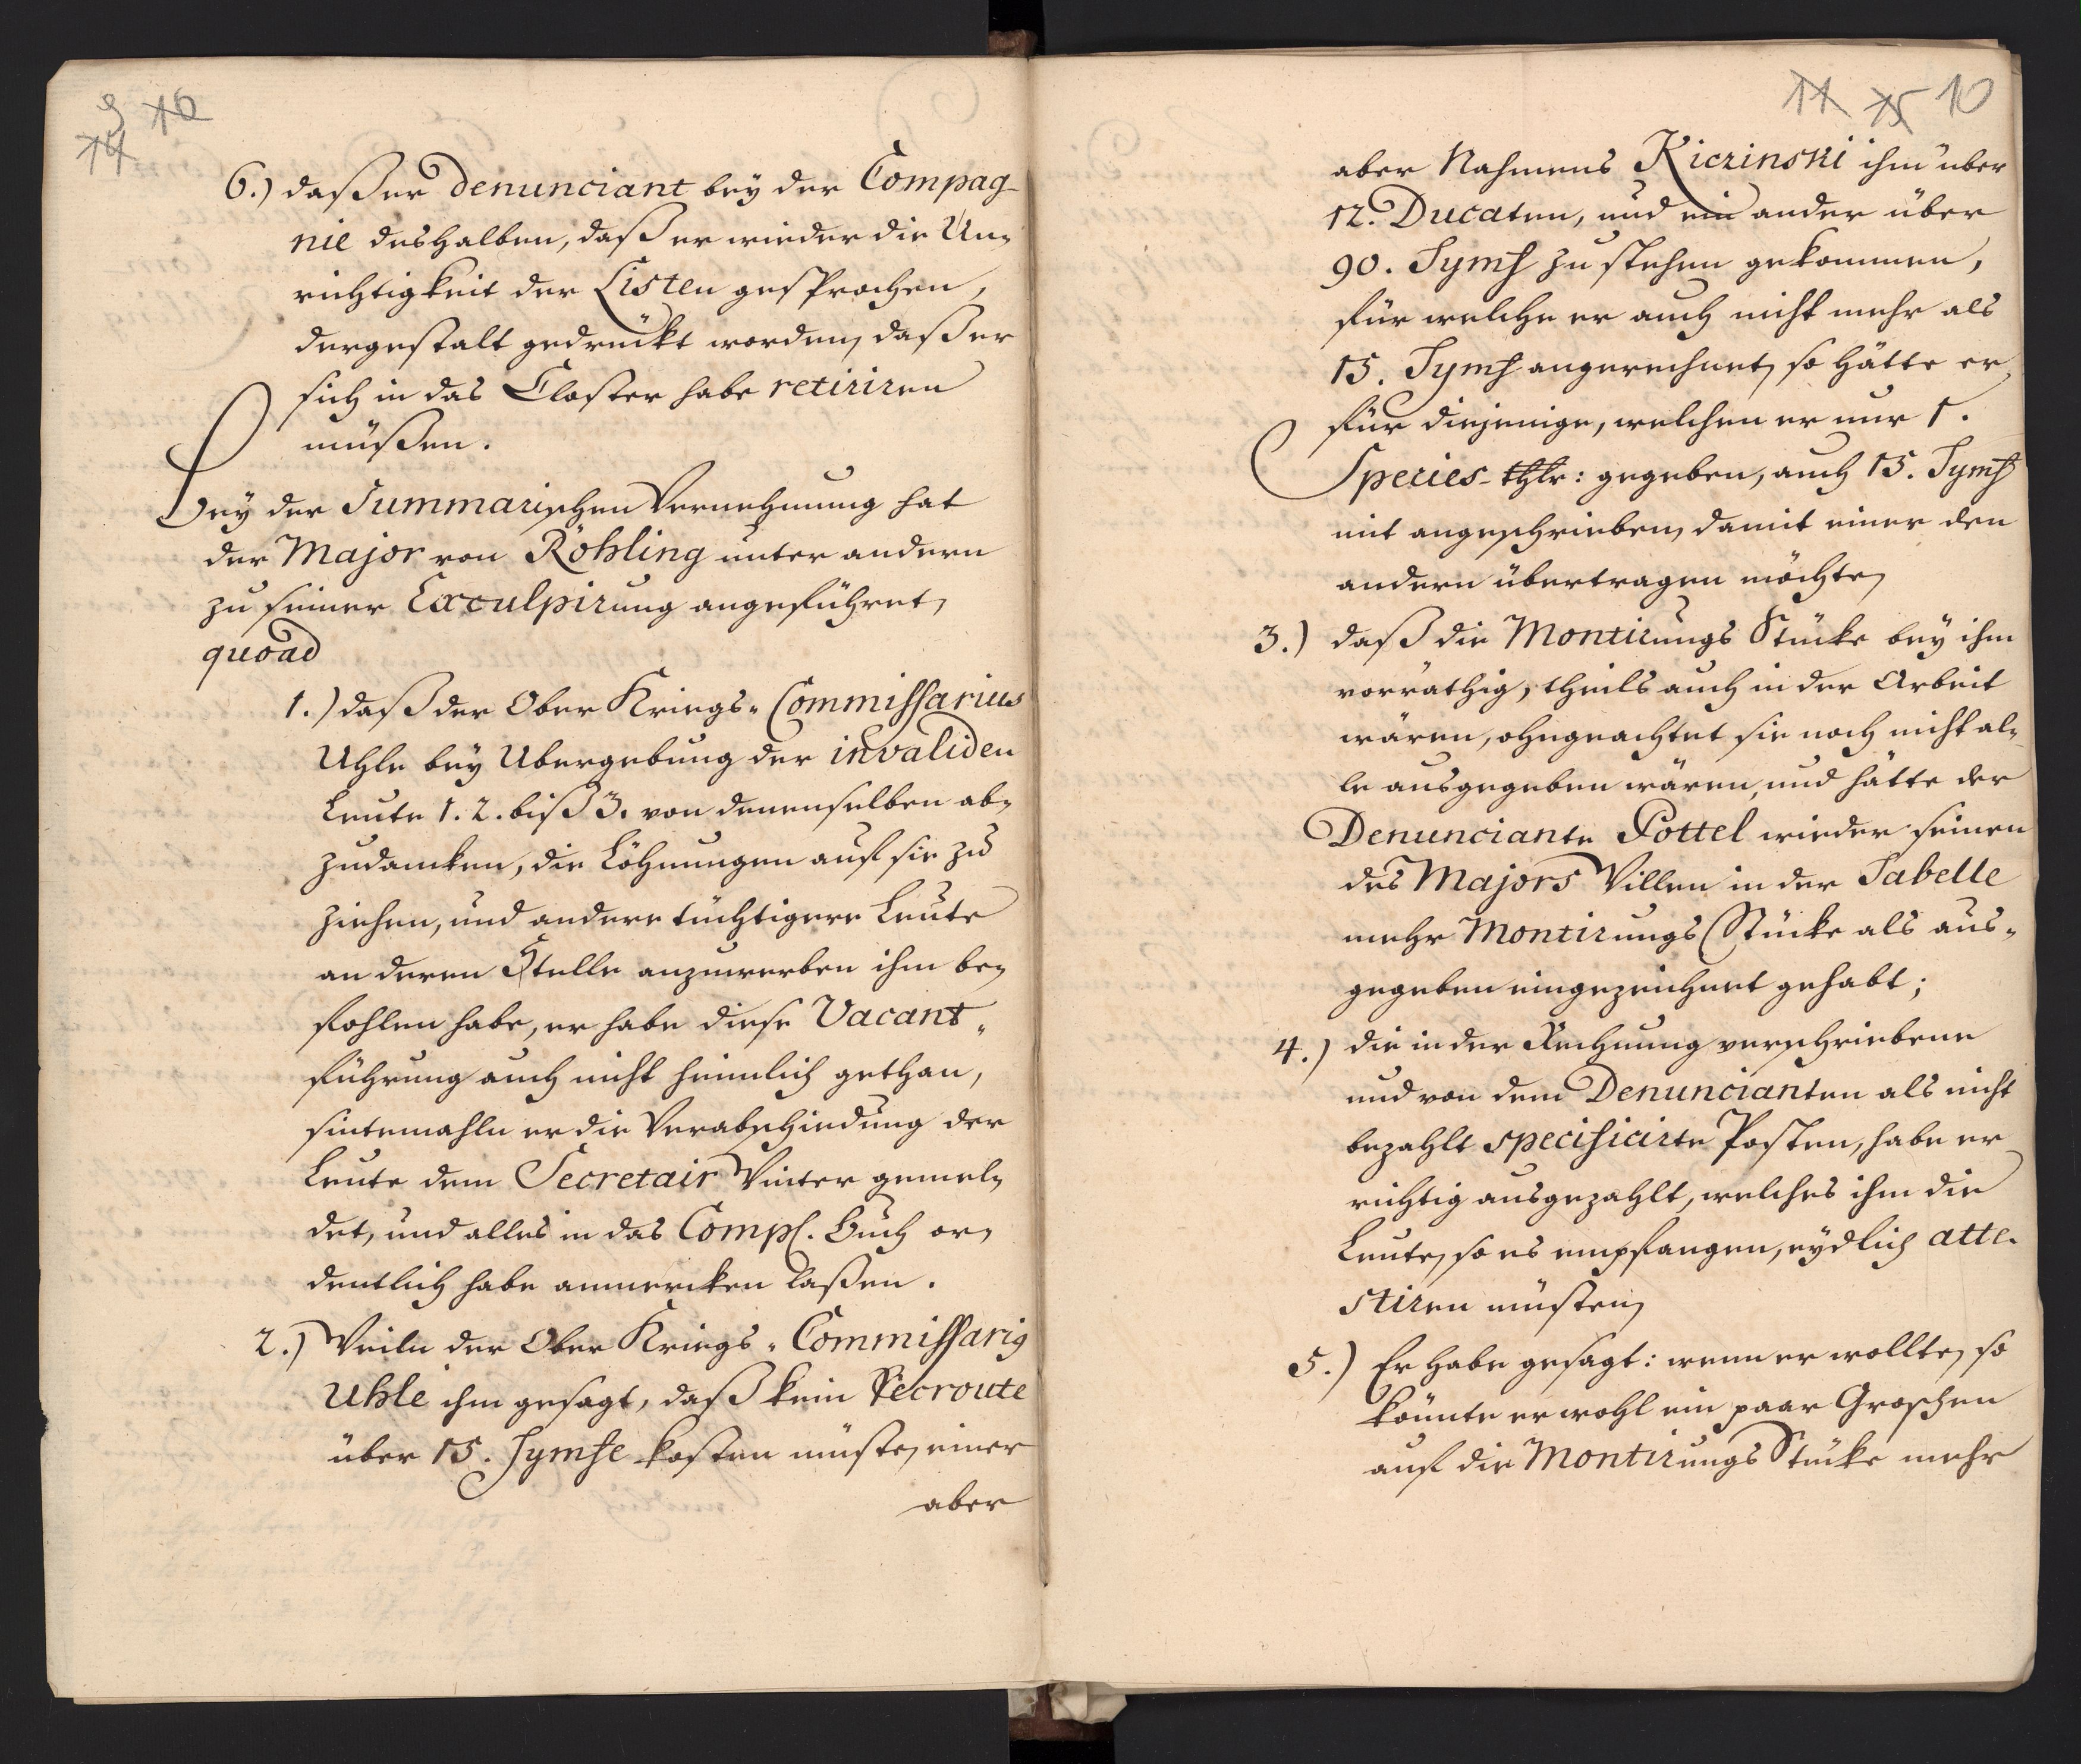 9 16
14
6.) daß er denunciant bey der Compag-
nie deshalben, daß er wieder die Un-
richtigkeit der Listen gesprochen,
dergestalt gedrückt worden, daß er
sich in das Closter habe retiriren
müßen.
Bey der Summarischen Vernehmung hat
der Major von Röhling unter andern
zu seiner Exculpirung angeführet,
quoad
1.) daß der Ober Kriegs-Commissarius
Uhle bey Ubergebung der invaliden
Leute 1. 2. biß 3. von denenselben ab-
zudancken, die Löhnungen auf sie zu
ziehen, und andere tüchtigere Leute
an deren Stelle anzuwerben ihm be-
fohlen habe, er habe diese Vacant-
führung auch nicht heimlich gethan,
sintemahln er die Verabschiedung der
Leute dem Secretair Winter gemel-
det, und alles in das Comp. Buch or-
dentlich habe anmercken laßen.
2.) Weiln der Ober Kriegs-Commissarig
Uhle ihm gesagt, daß kein Recroute
über 15. Tymfe kosten müste, einer
aber
11 15 10
aber Nahmens Kiczinski ihm über
12. Ducaten, und ein ander über
90. Tymf zu stehen gekommen,
für welche er auch nicht mehr als
15. Tymf angerechnet, so hätte er
für diejenige, welchen er nur 1.
Species-thlr: gegeben, auch 15. Tymf
mit angeschrieben, damit einer den
andern übertragen möchte,
3.) daß die Montirungs Stücke bey ihm
vorräthig, theils auch in der Arbeit
wären, ohngeachtet sie noch nicht al-
le ausgegeben wären, und hätte der
Denunciante Pottel wieder seinen
des Majors Willen in der Tabelle
mehr Montirungs Stücke als aus-
gegeben eingezeichnet gehabt;
4.) die in der Rechnung verschriebene
und von dem Denuncianten als nicht
bezahlt specificirte Posten, habe er
richtig ausgezahlt, welches ihm die
Leute, so es empfangen, eydlich atte-
stiren müsten,
5.) Er habe gesagt: wenn er wollte, so
könnte er wohl ein paar Groschen
auf die Montirungs Stücke mehr